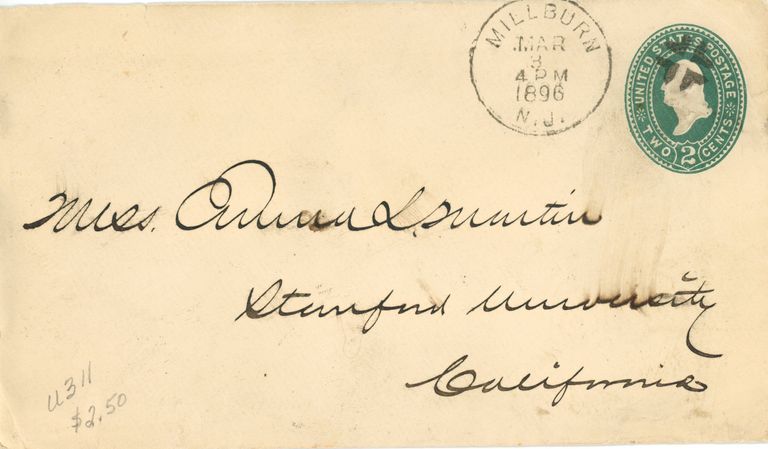 MILLBURN
MAR
3
4 PM
1896
N.J.
UNITED STATES POSTAGE
TWO 2 CENTS
Miss. Anna L. Martin
Stanford University
California
U311
$2.50